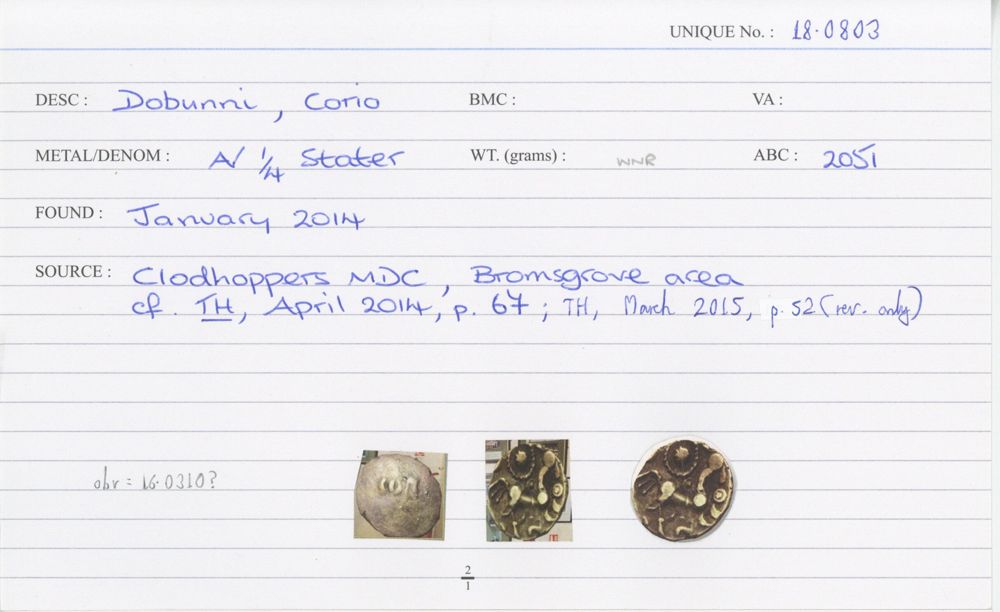 UNIQUE No. : 18·0803
DESC : Dobunni, Corio BMC : VA :
METAL/DENOM : A/ 1/4 Stater WT. (grams) : WNR ABC : 2051
FOUND : January 2014
SOURCE : Clodhoppers MDC, Bromsgrove area
cf. TH, April 2014, p. 67; TH, March 2015, p. 52 (rev. only)
obv = 16·0310?
2
1